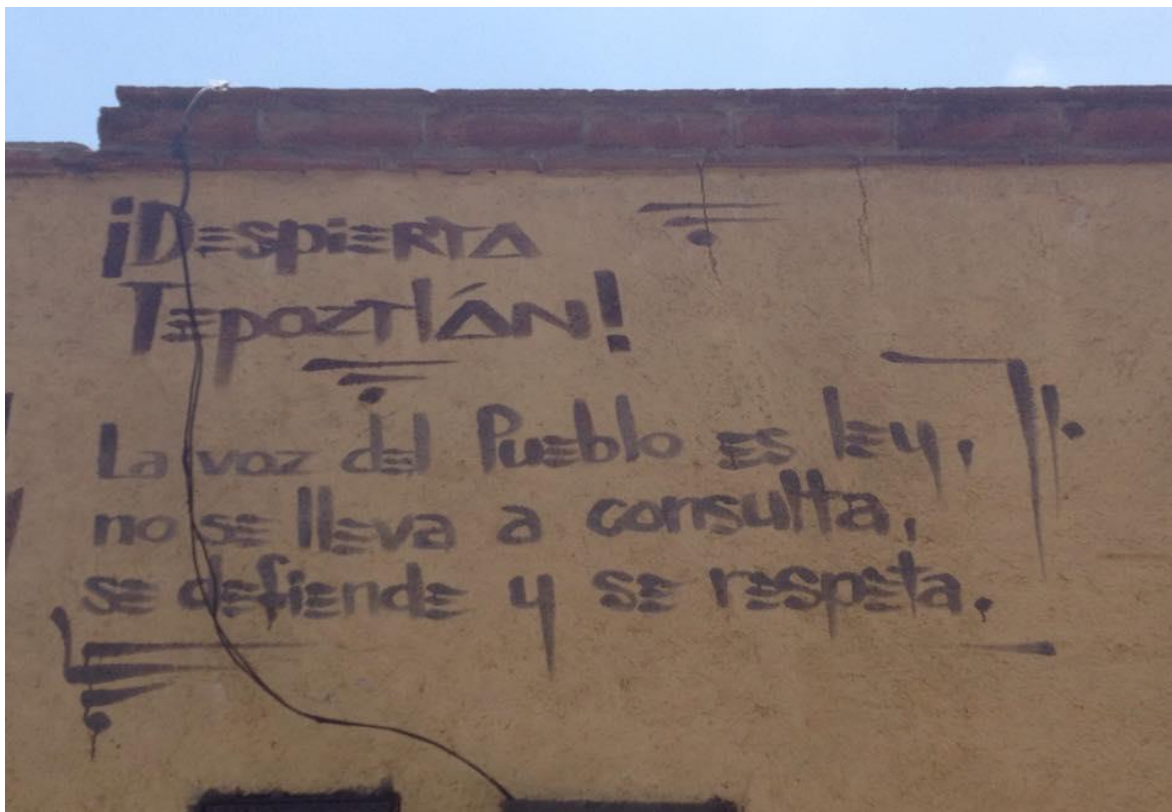 ¡Despierta
Tepoztlán!
La voz del Pueblo es ley,
no se lleva a consulta,
se defiende y se respeta.